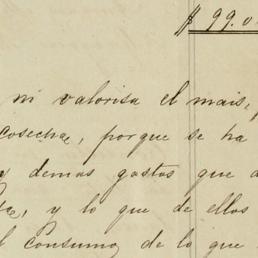 $ 99.0
ni valorisa el mais,
cosecha, porque se ha
y demas gastos que
y lo que de ellos
consumo, de lo que